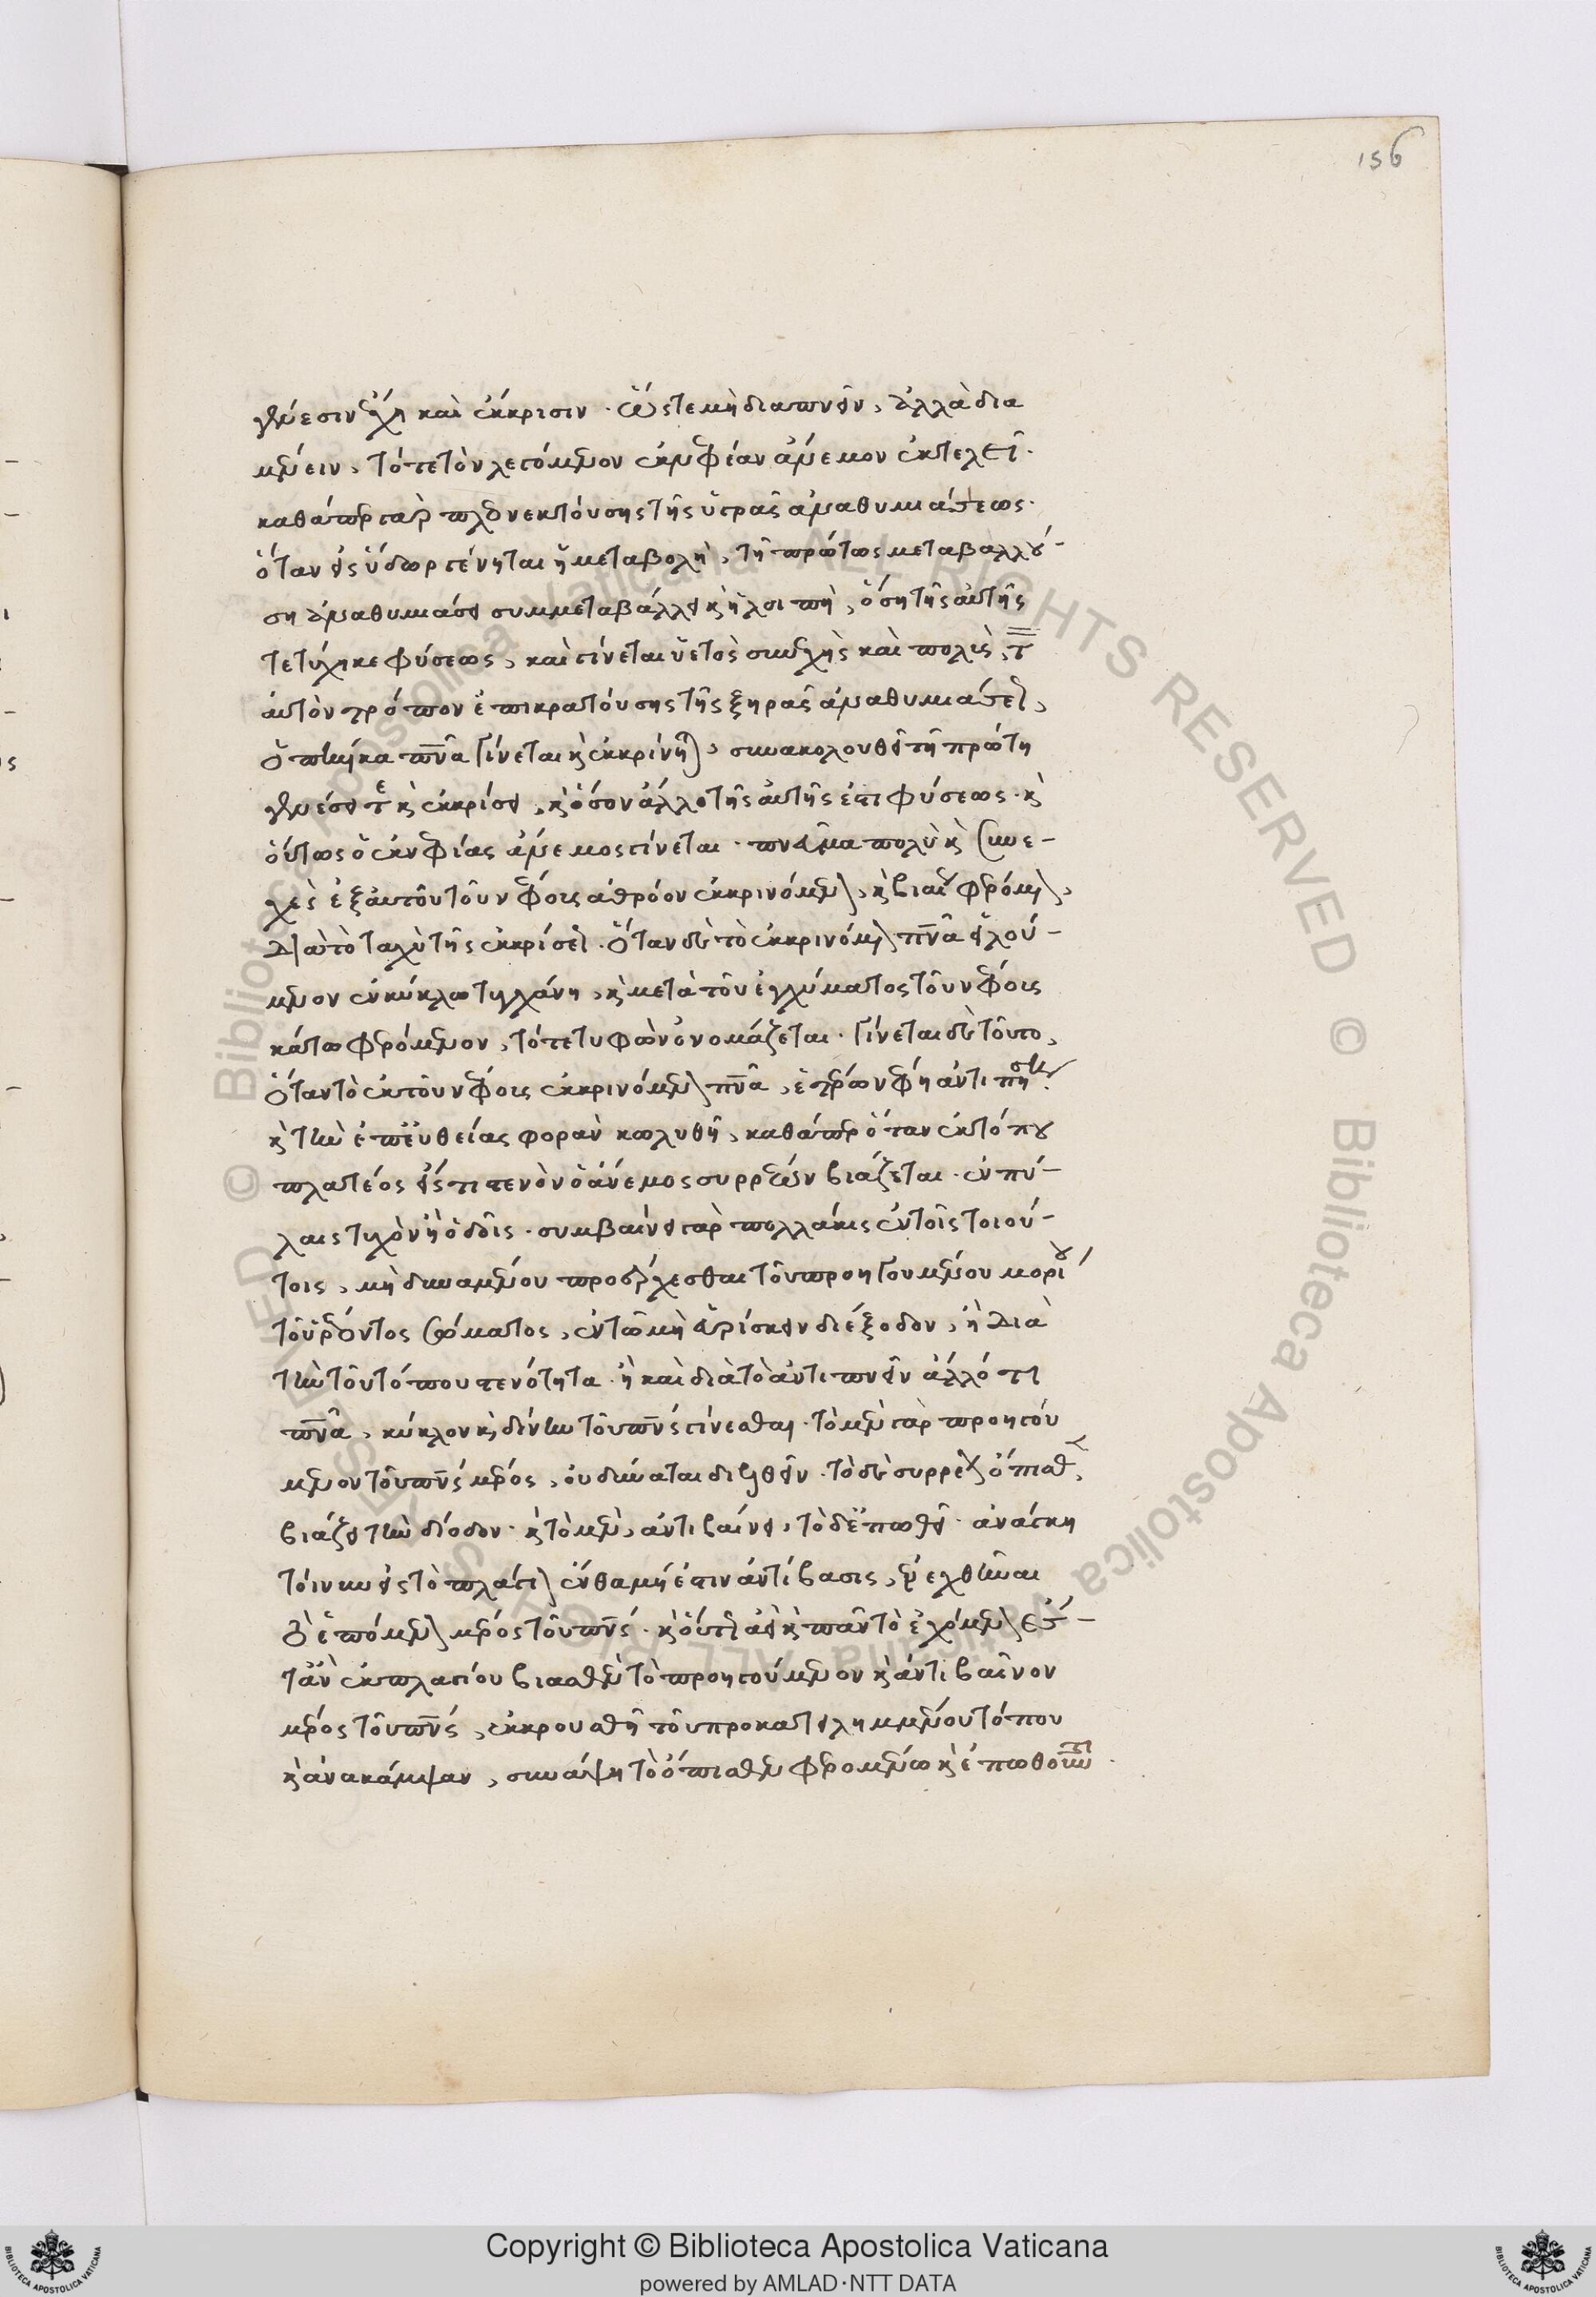 156
γένεσιν ἔχῃ καὶ ἔκκρισιν · ὥστε μὴ διαπνεῖν, ἀλλὰ δια
μένειν, τότε τὸν λεγόμενον ἐκνεφίαν ἄνεμον ἐκτελεῖ ·
καθάπερ γὰρ πλεονεκτούσης τῆς ὑγρᾶς ἀναθυμιάσεως ·
ὅταν εἰς ὕδωρ γένηται ἡ μεταβολὴ, τῇ πρώτως μεταβαλλού-
σῃ ἀναθυμιάσει συμμεταβάλλει κὶ ἡ λοιπὴ, ὅση τῆς αὐτῆς
τετύχηκε φύσεως, καὶ γίνεται ὑετὸς συνεχὴς καὶ πολὺς, τὸν
αὐτὸν τρόπον ἐπικρατούσης τῆς ξηρᾶς ἀναθυμιάσεως,
ὁπηνίκα πνᾶ γίνεται κὶ ἐκκρίνηται, συνακολουθεῖ τῇ πρώτῃ
γενέσει τε κὶ ἐκκρίσει, κὶ ὅσον ἄλλο τῆς αὐτῆς ἐστι φύσεως · κὶ
οὕτως ὁ ἐκνεφίας ἄνεμος γίνεται · πνεῦμα πολὺ κὶ συνε-
χὲς ἐξ αὐτοῦ τοῦ νέφους ἀθρόον ἐκκρινόμενον, κὶ βιαίως φερόμενον,
διὰ τὸ ταχὺ τῆς ἐκκρίσεως · ὅταν δὲ τὸ ἐκκρινόμενον πνᾶ εἰλού-
μενον ἐν κύκλω τυγχάνῃ, κὶ μετὰ τοῦ ἐγχύματος τοῦ νέφους
κάτω φερόμενον, τότε τυφὼν ὀνομάζεται · γίνεται δὲ τοῦτο,
ὅταν τὸ ἐκ τοῦ νέφους ἐκκρινόμενον πνᾶ, ἑτέρω νέφῃ ἀντιπ
κὶ τὴν ἐπ εὐθείας φορὰν κωλυθῇ, καθάπερ ὅταν ἐκ τόπου
πλατέος εἴς τι στενὸν ὁ ἄνεμος συρρέων βιάζεται · ἐν πύ-
λαις τυχὸν ἢ ὁδοῖς · συμβαίνει γὰρ πολλάκις ἐν τοῖς τοιού-
τοις, μὴ δυναμένου προσέρχεσθαι τοῦ προηγουμένου μορίου
τοῦ ῥέοντος σώματος, ἐν τῶ μὴ εὑρίσκειν διέξοδον, ἢ διὰ
τὴν τοῦ τόπου στενότητα · ἢ καὶ διὰ τὸ ἀντιπνεῖν ἄλλό τι
πνᾶ, κύκλον κὶ δίνην τοῦ πνς γίνεσθαι · τὸ μὲν γὰρ προηγού
μενον τοῦ πνς μέρος, οὐ δύναται διελθεῖν · τὸ δὲ συρρέον ὄπισθεν,
βιάζει τὴν δίοδον · κὶ τὸ μὲν, ἀντιβαίνει, τὸ δ ἐπωθεῖ · ἀνάγκη
τοίνυν εἰς τὸ πλάγιον ἔνθα μή ἐστιν ἀντίβασις, ἐνεχθῆναι
τὸ ἑπόμενον μέρος τοῦ πνς · κὶ οὕτως ἀεὶ κὶ πᾶν τὸ ἐχόμενον ἔστ-
τ ἂν ἐκ πλαγίου βιασθὲν τὸ προηγούμενον κὶ ἀντιβαῖνον
μέρος τοῦ πνς, ἐκκρουσθῇ τοῦ προκατειλημμένου τόπου
κὶ ἀνακάμψαν, συνάψῃ τῶ ὄπισθεν φερομένω κὶ ἐπωθοῦντι ·
Copyright © Biblioteca Apostolica Vaticana
powered by AMLAD·NTT DATA
© Biblioteca Apostolica Vaticana ALL RIGHTS RESERVED © Biblioteca Apostolica Vaticana ALL RIGHTS RESERVED
BIBLIOTECA APOSTOLICA VATICANA
BIBLIOTECA APOSTOLICA VATICANA